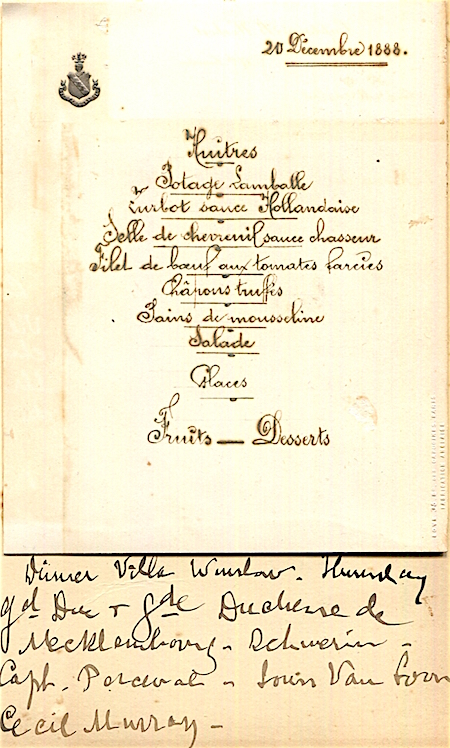 20 Décembre 1888.
Huîtres
Potage Lamballe
Turbot sauce Hollandaise
Selle de chevreuil sauce chasseur
Filet de bœuf aux tomates farcies
Châpons truffés
Pains de mousseline
Salade
Glaces
Fruits — Desserts
Dinner Villa Winslow. Thursday
gd Duc + gde Duchesse de
Mecklembourg - Schwerin -
Capt. Perceval - Louis Van
Cecil Murray -